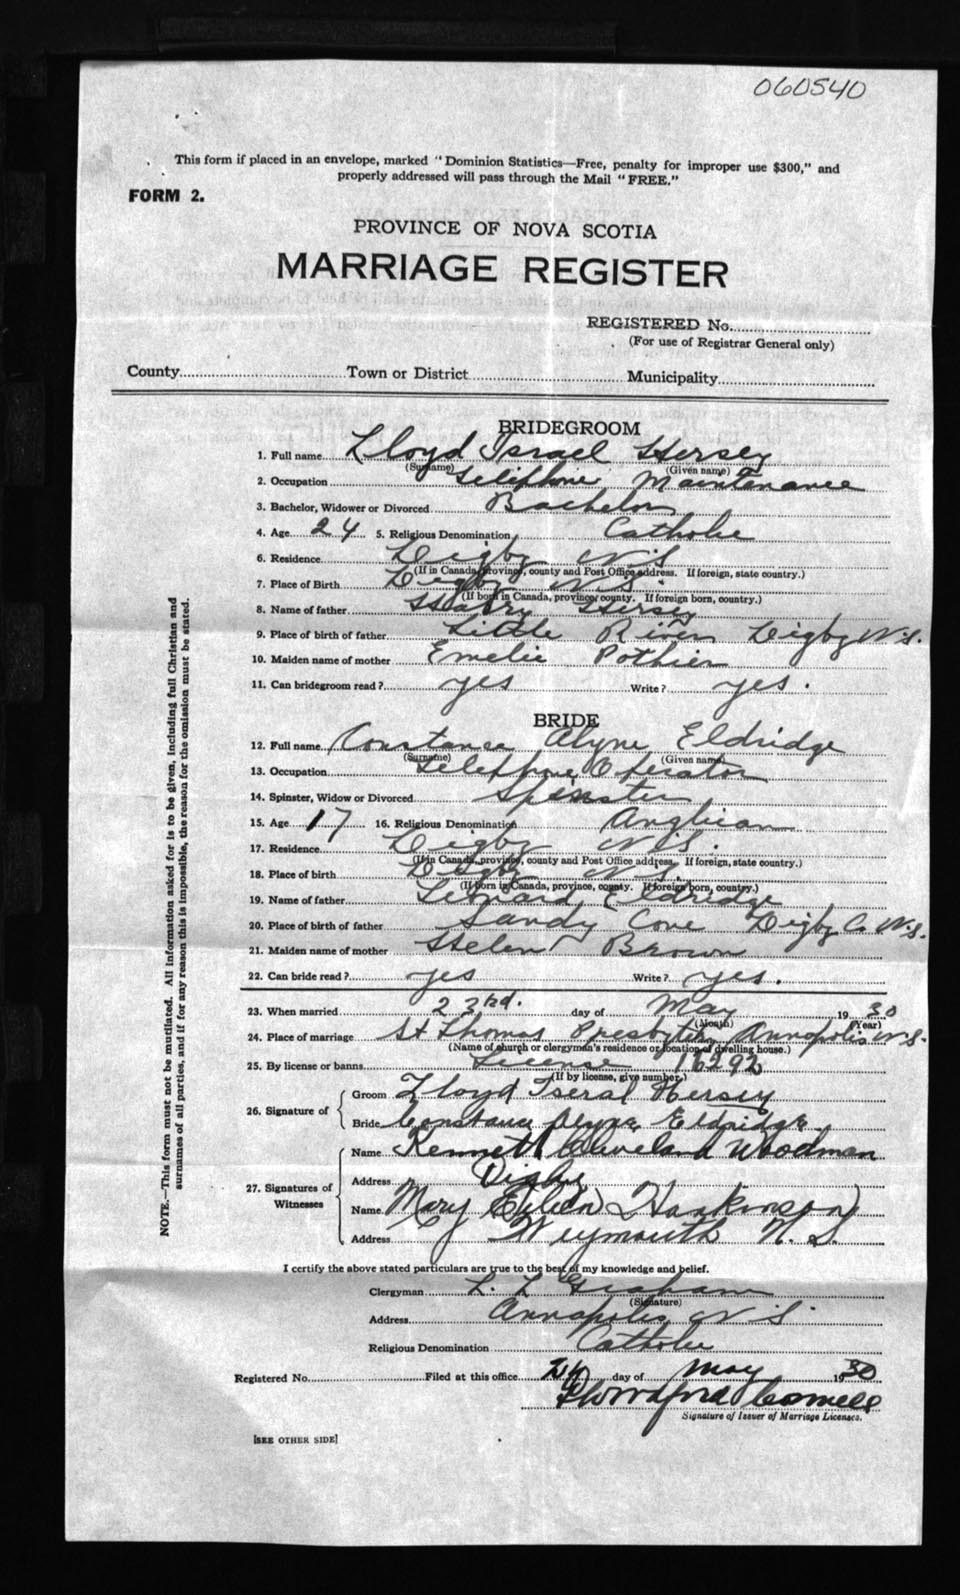 060540
This form if placed in an envelope, marked "Dominion Statistics—Free, penalty for improper use $300," and
properly addressed will pass through the Mail "FREE."
FORM 2.
PROVINCE OF NOVA SCOTIA
MARRIAGE REGISTER
REGISTERED No.
(For use of Registrar General only)
County Town or District Municipality
BRIDEGROOM
1. Full name Lloyd Israel Hersey
(Surname) (Given name)
2. Occupation Telephone Maintenance
3. Bachelor, Widower or Divorced Bachelor
4. Age 24 5. Religious Denomination Catholic
6. Residence Digby N.S
(If in Canada, province, county and Post Office address. If foreign, state country.)
7. Place of Birth Digby N.S.
(If born in Canada, province, county. If foreign born, country.)
8. Name of father Harry Hersey
9. Place of birth of father Little River Digby N.S.
10. Maiden name of mother Emelie Pothier
11. Can bridegroom read? yes Write? yes.
BRIDE
12. Full name Constance Alyne Eldridge
(Surname) (Given name)
13. Occupation Telephone Operator
14. Spinster, Widow or Divorced Spinster
15. Age 17 16. Religious Denomination Anglican
17. Residence Digby N.S.
(If in Canada, province, county and Post Office address. If foreign, state country.)
18. Place of birth Digby N.S.
(If born in Canada, province, county. If foreign born, country.)
19. Name of father Leonard Eldridge
20. Place of birth of father Sandy Cove Digby Co N.S.
21. Maiden name of mother Helen Brown
22. Can bride read? yes Write? yes.
23. When married 23rd. day of May 1930
(Month) (Year)
24. Place of marriage St Thomas Presbytry Annapolis N.S.
(Name of church or clergyman's residence or location of dwelling house.)
25. By license or banns License 16292
(If by license, give number.)
26. Signature of
Groom Lloyd Iseral Hersey
Bride Constance Alyne Eldridge.
27. Signatures of
Witnesses
Name Kenneth Cleveland Woodman
Address Digby
Name Mary Eileen Hankinson
Address Weymouth N.S.
I certify the above stated particulars are true to the best of my knowledge and belief.
Clergyman L. L Graham
(Signature)
Address Annapolis N S
Religious Denomination Catholic
Registered No. Filed at this office day of May 1930
Signature of Issuer of Marriage Licenses.
[SEE OTHER SIDE]
NOTE.—This form must not be mutilated. All information asked for is to be given, including full Christian and
surnames of all parties, and if for any reason this is impossible, the reason for the omission must be stated.